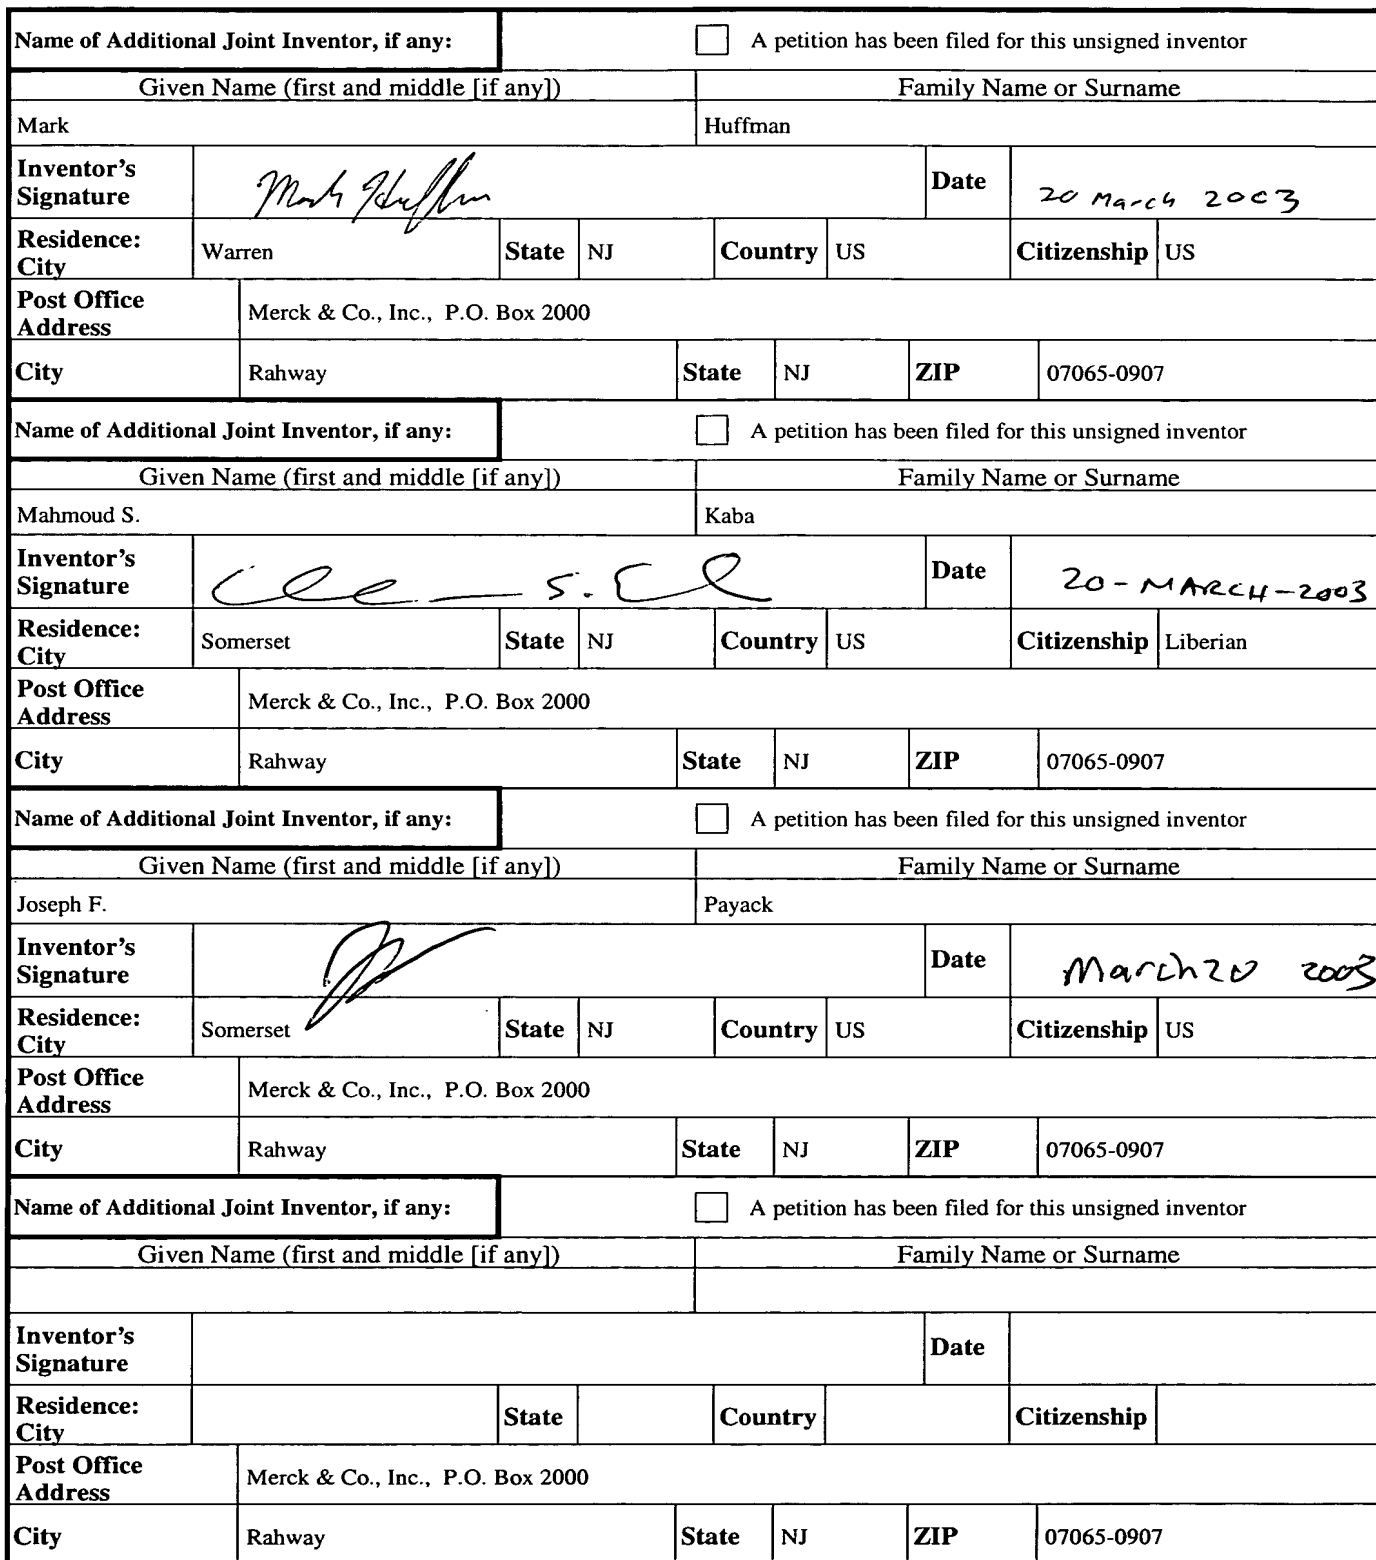 Name of Additional Joint Inventor, if any: A petition has been filed for this unsigned inventor
Given Name (first and middle [if any]) Family Name or Surname
Mark Huffman
Inventor's Signature Mark Huffman Date 20 March 2003
Residence: City Warren State NJ Country US Citizenship US
Post Office Address Merck & Co., Inc., P.O. Box 2000
City Rahway State NJ ZIP 07065-0907
Name of Additional Joint Inventor, if any: A petition has been filed for this unsigned inventor
Given Name (first and middle [if any]) Family Name or Surname
Mahmoud S. Kaba
Inventor's Signature S. Date 20-MARCH-2003
Residence: City Somerset State NJ Country US Citizenship Liberian
Post Office Address Merck & Co., Inc., P.O. Box 2000
City Rahway State NJ ZIP 07065-0907
Name of Additional Joint Inventor, if any: A petition has been filed for this unsigned inventor
Given Name (first and middle [if any]) Family Name or Surname
Joseph F. Payack
Inventor's Signature Date March 20 2003
Residence: City Somerset State NJ Country US Citizenship US
Post Office Address Merck & Co., Inc., P.O. Box 2000
City Rahway State NJ ZIP 07065-0907
Name of Additional Joint Inventor, if any: A petition has been filed for this unsigned inventor
Given Name (first and middle [if any]) Family Name or Surname
Inventor's Signature Date
Residence: City State Country Citizenship
Post Office Address Merck & Co., Inc., P.O. Box 2000
City Rahway State NJ ZIP 07065-0907